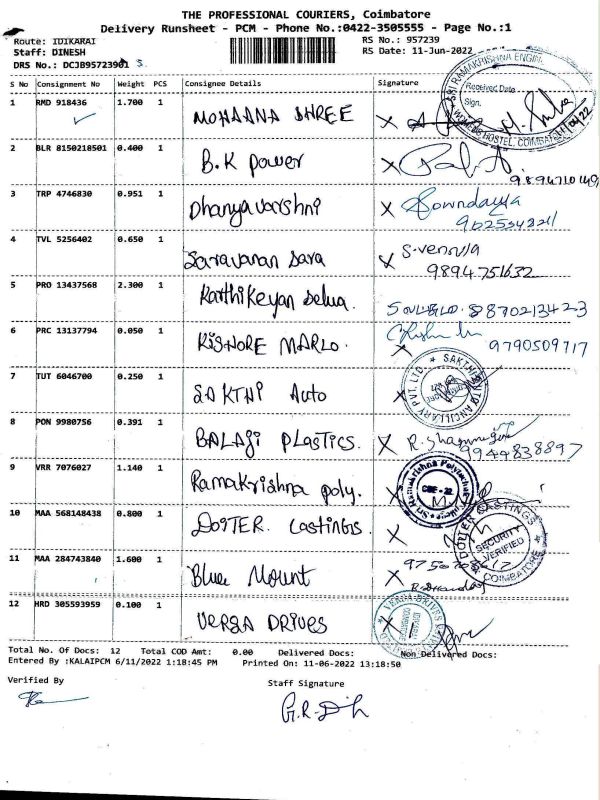 THE PROFESSIONAL COURIERS, Coimbatore
Delivery Runsheet - PCM - Phone No.:0422-3505555 - Page No.:1
Route: IDIKARAI RS No.: 957239
Staff: DINESH RS Date: 11-Jun-2022
DRS No.: DCJB95723901
S No Consignment No Weight PCS Consignee Details Signature
1 RMD 918436 1.700 1 MOHAANA SHREE
SRI RAMAKRISHNA ENGIN
Received Date
Sign.
WOMENS HOSTEL, COIMBATORE
2 BLR 8150218501 0.400 1 B.K power
3 TRP 4746830 0.951 1 Dhanyavarshni Sowndayya
4 TVL 5256402 0.650 1 Saravanan Sara
9894751632
5 PRO 13437568 2.300 1 Karthikeyan Selva. 8870213423
6 PRC 13137794 0.050 1 KISHORE MARLO.
9790509717
7 TUT 6046700 0.250 1 SAKTHI Auto
ANCILLARY PVT. LTD. * SAKTHI
8 PON 9980756 0.391 1 BALAJI PLASTICS.
9944838897
9 VRR 7076027 1.140 1 Ramakrishna poly.
Sri Ramakrishna Polytechnic
10 MAA 568148438 0.800 1 DOITER. Castings
CASTINGS
SECURITY
VERIFIED
COIMBATORE
11 MAA 284743840 1.600 1 Blue Mount
12 HRD 305593959 0.100 1 VERSA DRIVES
VERSA DRIVES
Total No. Of Docs: 12 Total COD Amt: 0.00 Delivered Docs: Non Delivered Docs:
Entered By :KALAIPCM 6/11/2022 1:18:45 PM Printed On: 11-06-2022 13:18:50
Verified By Staff Signature
G.R-